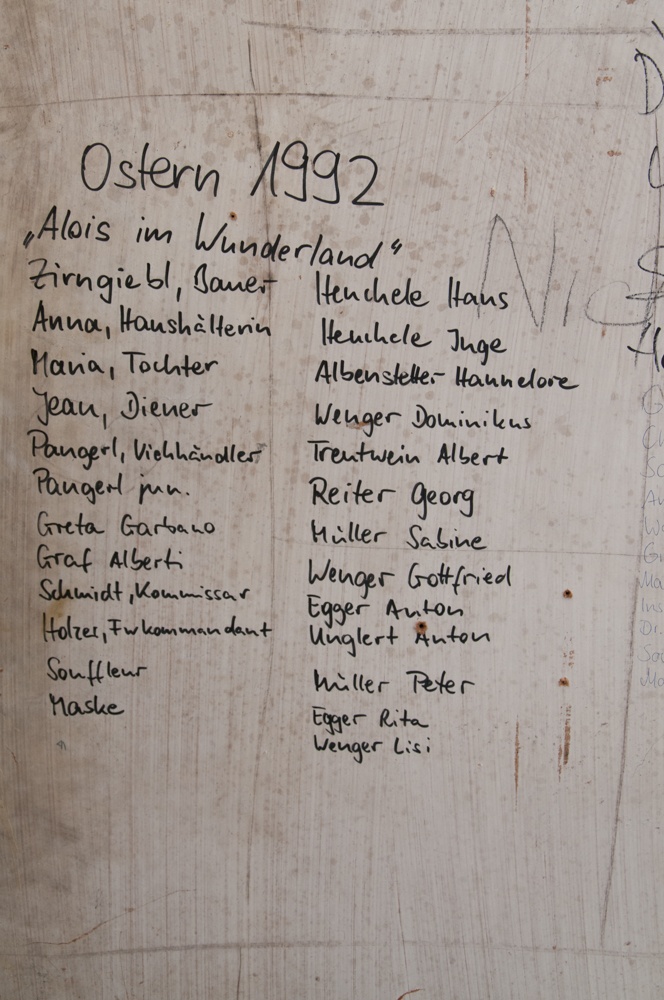 Ostern 1992
„Alois im Wunderland“
Zirngiebl, Bauer Henchele Hans
Anna, Haushälterin Henchele Inge
Maria, Tochter Albenstetter Hannelore
Jean, Diener Wenger Dominikus
Pangerl, Viehhändler Trentwein Albert
Pangerl jun. Reiter Georg
Greta Garbano Müller Sabine
Graf Alberti Wenger Gottfried
Schmidt, Kommissar Egger Anton
Holzer, Fwkommandant Unglert Anton
Souffleur Müller Peter
Maske Egger Rita
Wenger Lisi